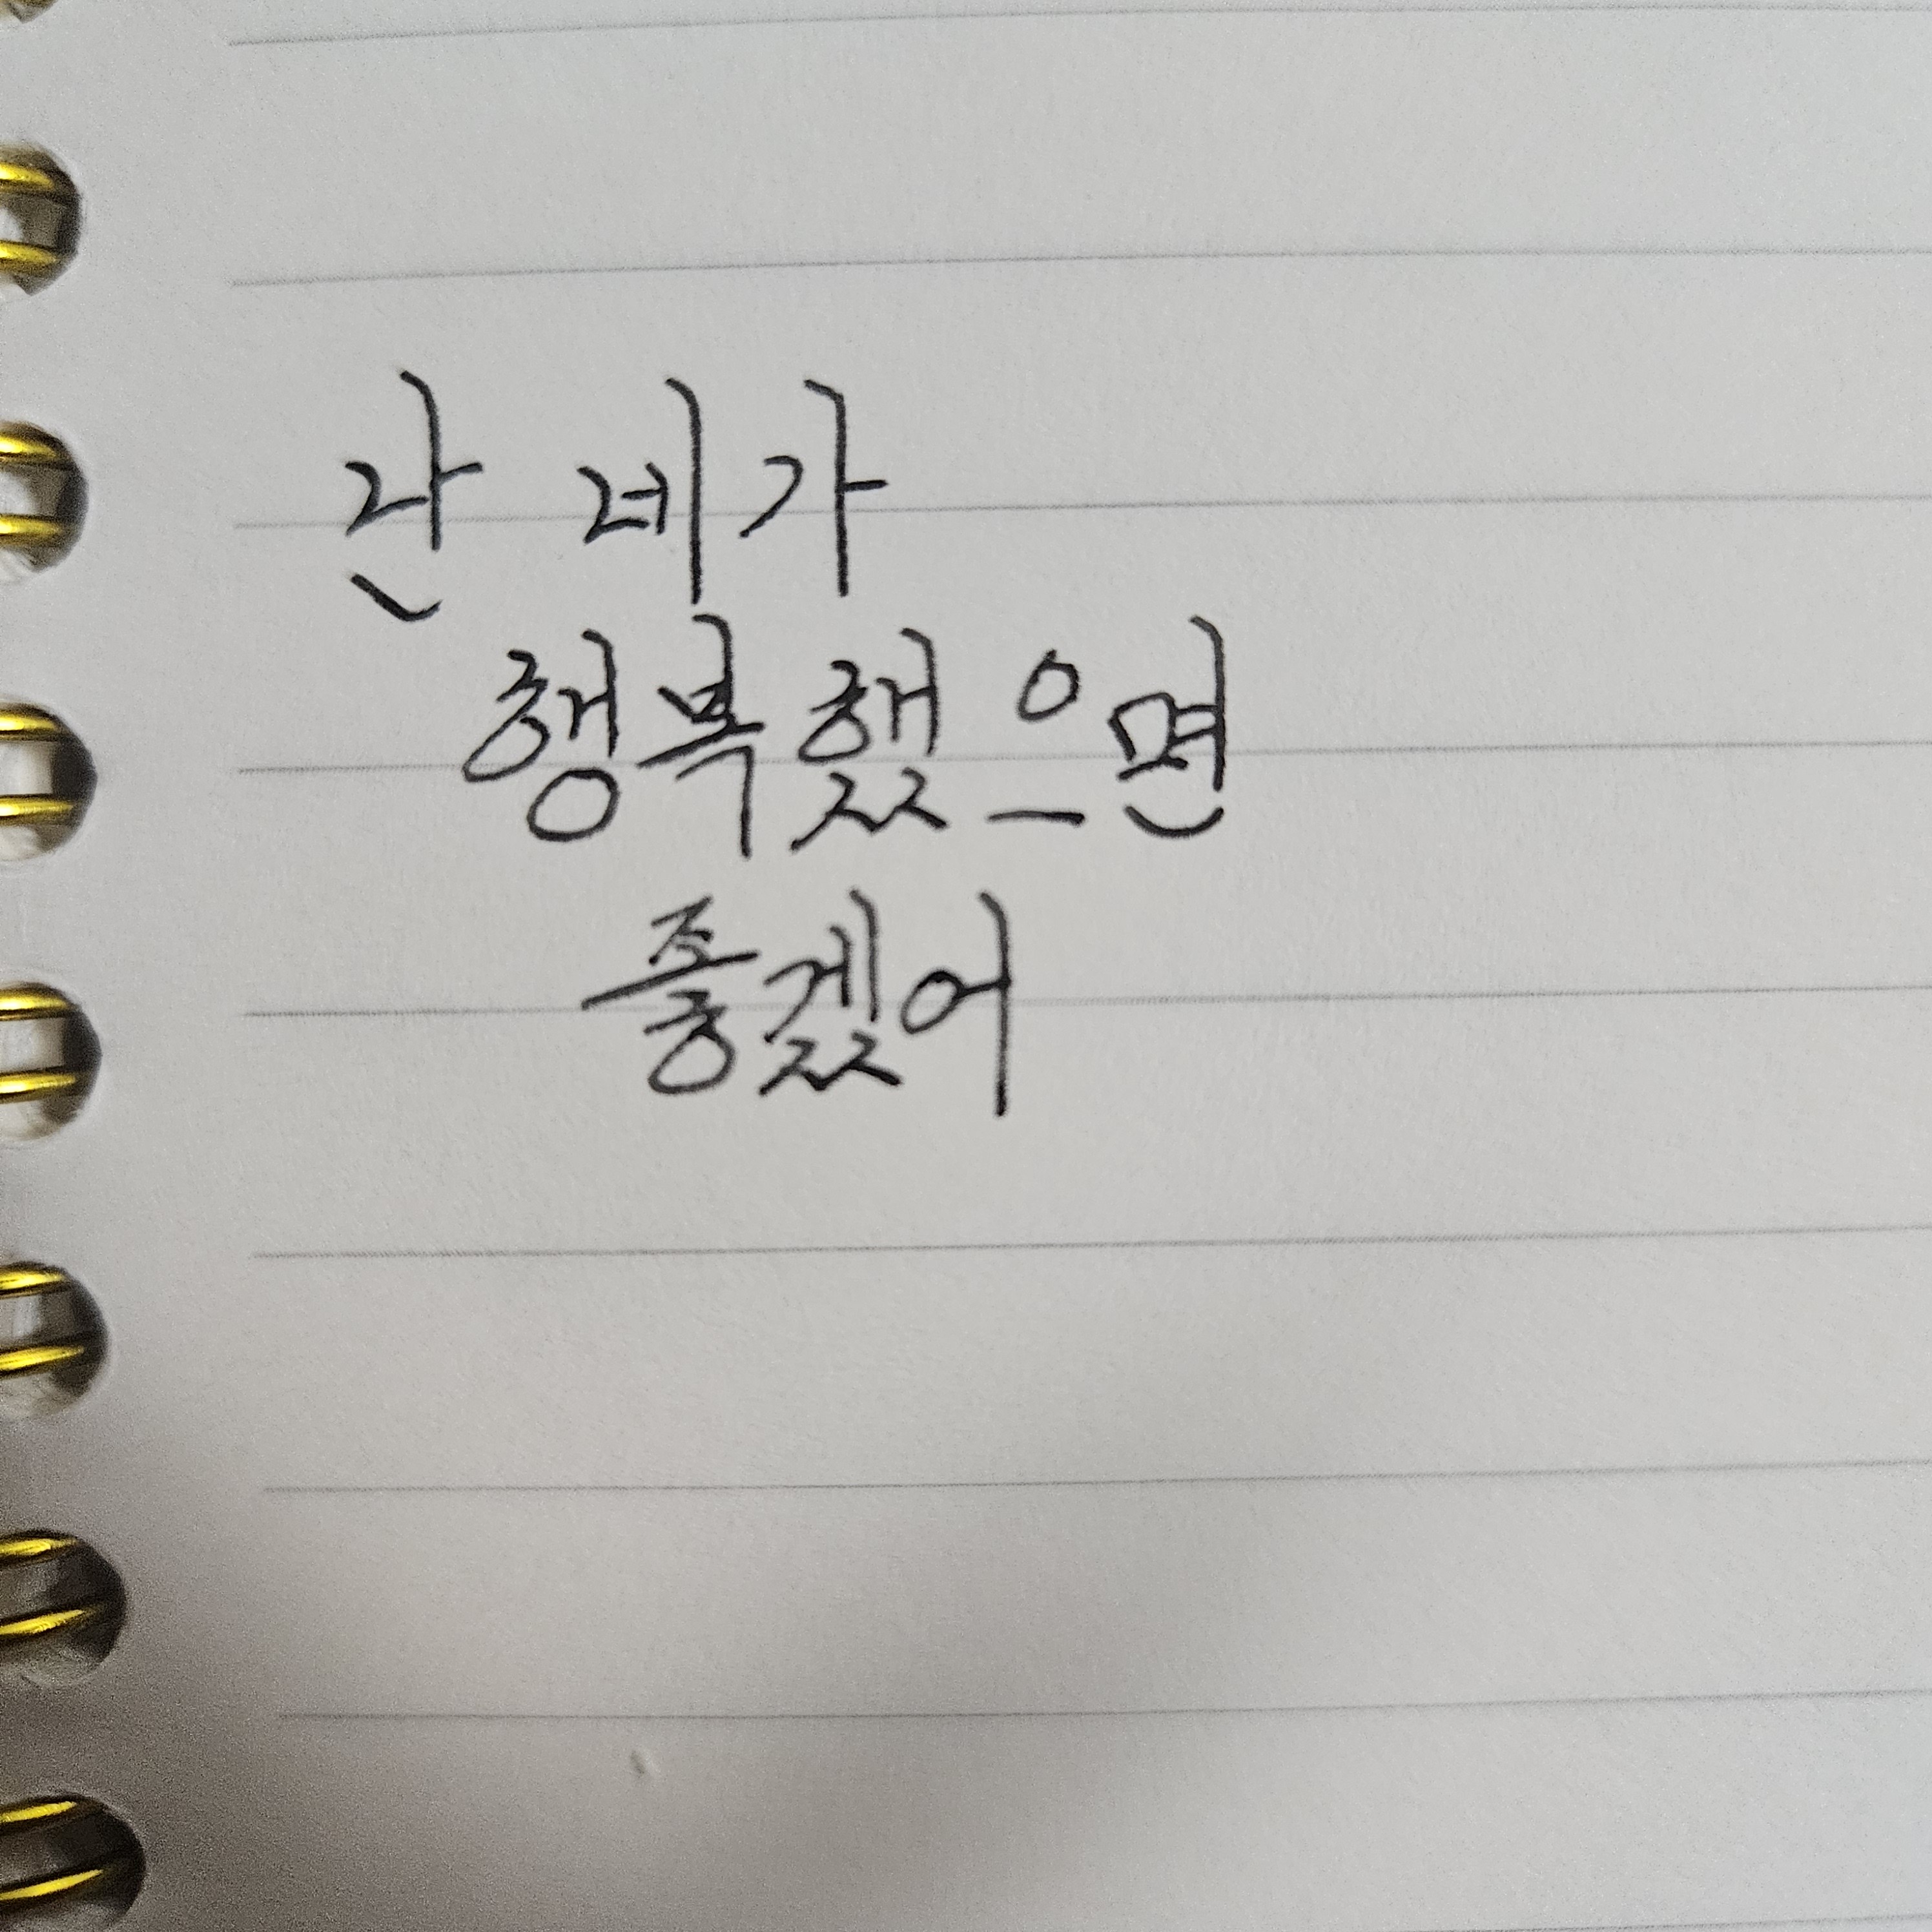 난 네가
행복했으면
좋겠어